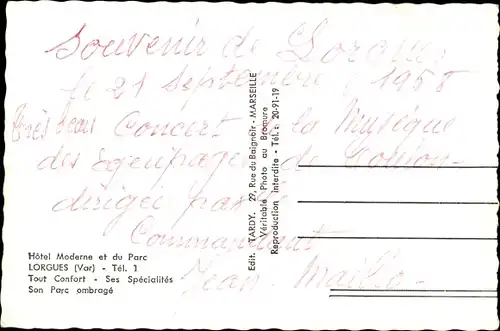 Souvenir de Lorgues
le 21 Septembre 1958
Très beau Concert de la Musique
des équipages de Toulon
dirigée par le
Commandant
Jean Maillot
Hôtel Moderne et du Parc
LORGUES (Var) - Tél. 1
Tout Confort - Ses Spécialités
Son Parc ombragé
Edit. TARDY. 29, Rue du Baignoir - MARSEILLE
Véritable Photo au Bromure
Reproduction Interdite - Tél. : 20-91-19